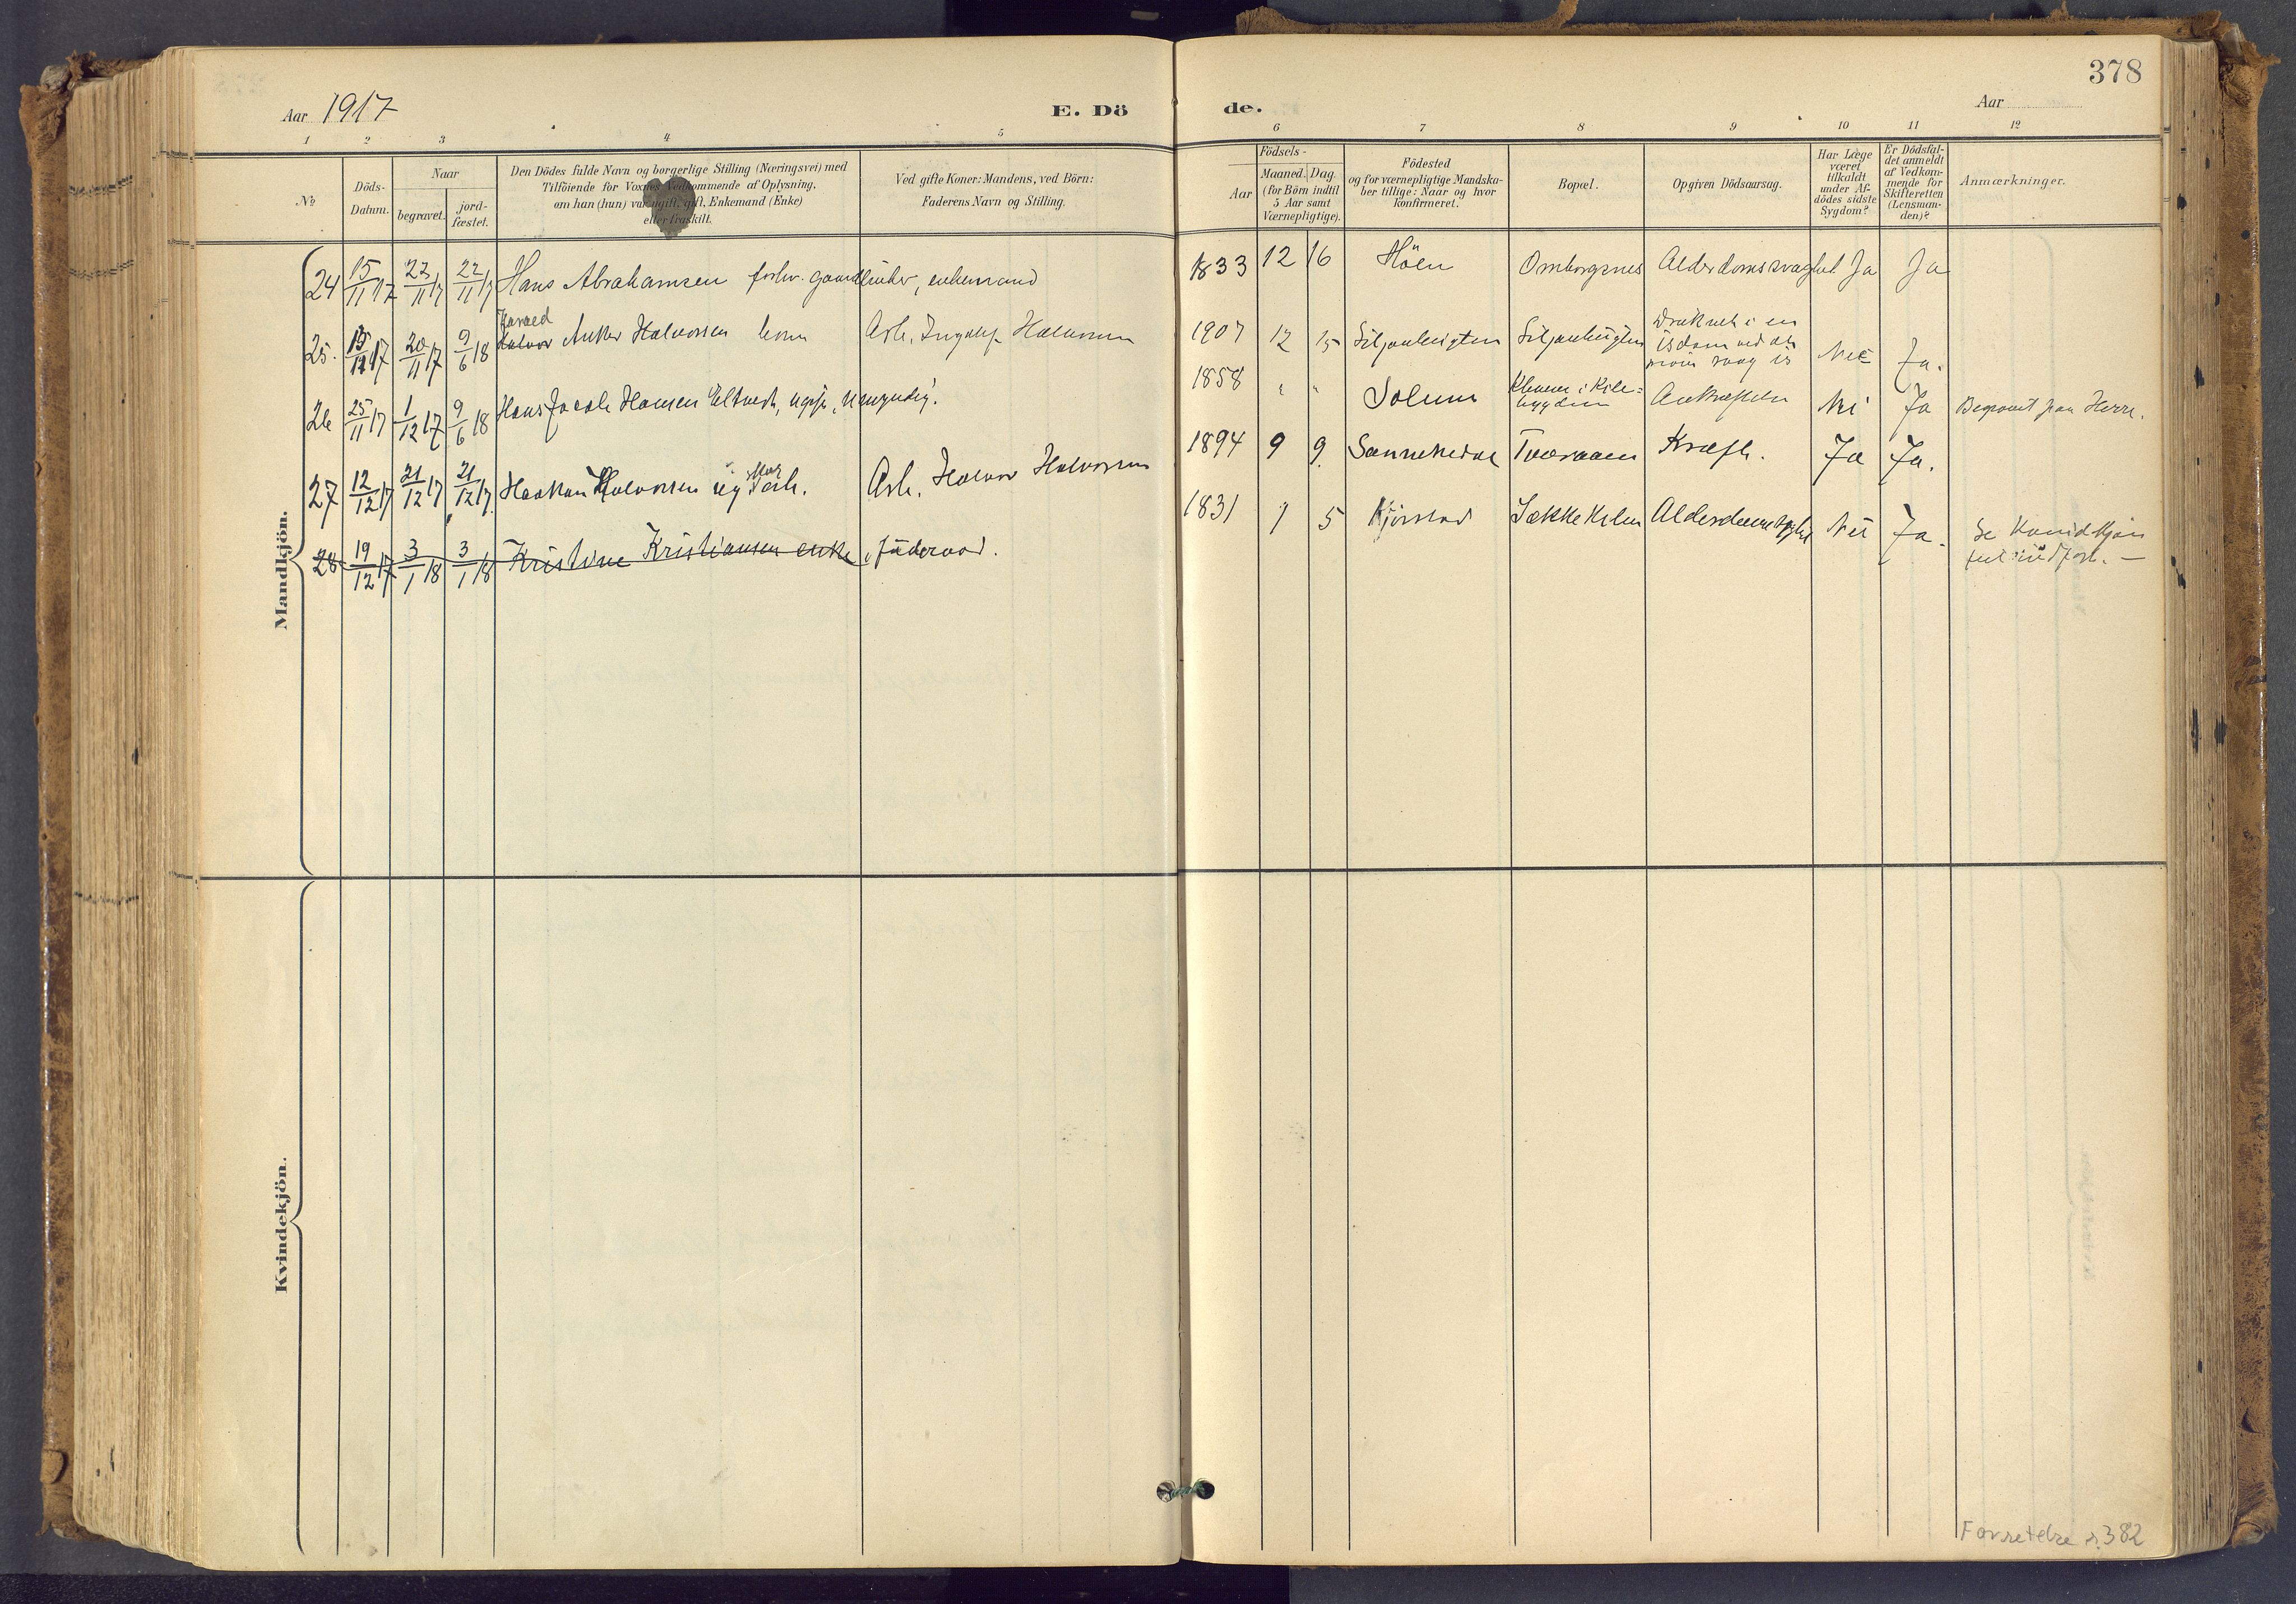 378
Aar 1917
E. Dö
de.
Aar
1 2 3 4 5 6 7 8 9 10 11 12
No
Döds-
Datum.
Naar
begravet.
jord-
fæstet.
Den Dödes fulde Navn og borgerlige Stilling (Næringsvei) med
Tilföiende for Voxnes Vedkommende af Oplysning,
om han (hun) var ugift, gift, Enkemand (Enke)
eller fraskilt.
Ved gifte Koner: Mandens, ved Börn:
Faderens Navn og Stilling.
Födsels-
Aar
Maaned. Dag.
(for Börn indtil
5 Aar samt
Værnepligtige).
Födested
og for værnepligtige Mandska-
ber tillige: Naar og hvor
konfirmeret.
Bopæl.
Opgiven Dödsaarsag.
Har Læge
været
tilkaldt
under Af-
dödes sidste
Sygdom?
Er Dödsfal-
det anmeldt
af Vedkom-
mende for
Skifteretten
(Lensman-
den)?
Anmærkninger.
Mandkjön.
24 15/11 17 22/11 17 22/11 17 Hans Abrahamsen forhv. gaardbruker, enkemand 1833 12 16 Höen Omborgsnes Alderdomssvaghet Ja Ja
Harald
25. 17 20/11 17 9/6 18 Halvor Anker Halvorsen Arb. Ingolf Halvorsen 1907 12 15 Druknet i en
isdam ved at
svag is Nei Ja.
26 25/11 17 1/12 17 9/6 18 Hans Jacob Hansen Eltvedt, ugift, umyndig. 1858 " " Solum i Kile-
bygden Nei Ja Begravet paa Herre.
27 12/12 17 21/12 17 21/12 17 Haakon Halvorsen ug arb. Arb. Halvor Halvorsen 1894 9 9. Sannikedal Kræft. Ja Ja.
28 19/12 17 3/1 18 3/1 18 Kristine Kristiansen enke, föderaad. 1831 1 5 Kjörstad Nei Ja. Se Kvindkjön
Kvindekjön.
Forsettelse s. 382